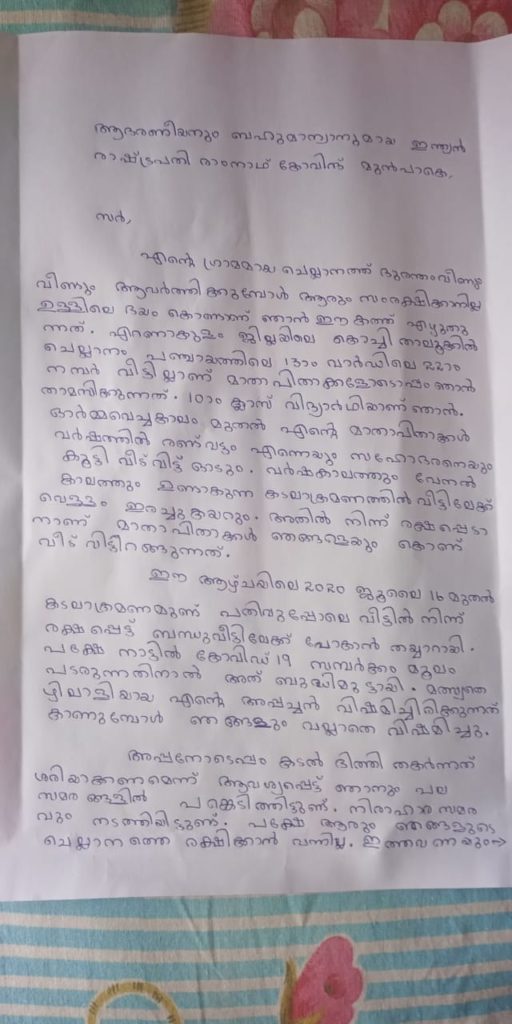 ആദരണീയനും ബഹുമാന്യാനുമായ ഇന്ത്യൻ
രാഷ്ട്രപതി രാംനാഥ് കോവിന്ദ് മുൻപാകെ,
സർ,
എന്റെ ഗ്രാമമായ ചെല്ലാനത്ത് ദുരന്തംവീണ്ടും
വീണ്ടും ആവർത്തിക്കുമ്പോൾ ആരും സംരക്ഷിക്കാനില്ല
ഉള്ളിലെ ഭയം കൊണ്ടാണ് ഞാൻ ഈ കത്ത് എഴുതു
ന്നത്. എറണാകുളം ജില്ലയിലെ കൊച്ചി താലൂക്കിൽ
ചെല്ലാനം പഞ്ചായത്തിലെ 13ാം വാർഡിലെ 220ം
നമ്പർ വീട്ടിലാണ് മാതാപിതാക്കളോടൊപ്പം ഞാൻ
താമസിക്കുന്നത്. 10ാം ക്ലാസ് വിദ്യാർഥിയാണ് ഞാൻ.
ഓർമ്മവെച്ചകാലം മുതൽ എന്റെ മാതാപിതാക്കൾ
വർഷത്തിൽ രണ്ട് വട്ടം എന്നെയും സഹോദരനെയും
കൂട്ടി വീട് വിട്ട് ഓടും. വർഷകാലത്തും വേനൽ
കാലത്തും ഉണ്ടാകുന്ന കടലാക്രമണത്തിൽ വീട്ടിലേക്ക്
വെള്ളം ഇരച്ചുകയറും. അതിൽ നിന്ന് രക്ഷപ്പെടാ
നാണ് മാതാപിതാക്കൾ ഞങ്ങളെയും കൊണ്ട്
വീട് വിട്ടിറങ്ങുന്നത്.
ഈ ആഴ്ചയിലെ 2020 ജൂലൈ 16 മുതൽ
കടലാക്രമണമുണ്ട് പതിവുപോലെ വീട്ടിൽ നിന്ന്
രക്ഷപ്പെട്ട് ബന്ധുവീട്ടിലേക്ക് പോകാൻ തയ്യാറായി.
പക്ഷേ നാട്ടിൽ കോവിഡ് 19 സമ്പർക്കം മൂലം
പടരുന്നതിനാൽ അത് ബുദ്ധിമുട്ടായി. മത്സ്യത്തൊ
ഴിലാളിയായ എന്റെ അപ്പച്ചൻ വിഷമിച്ചിരിക്കുന്നത്
കാണുമ്പോൾ ഞങ്ങളും വല്ലാതെ വിഷമിച്ചു.
അപ്പനോടൊപ്പം കടൽ ഭിത്തി തകർന്നത്
ശരിയാക്കണമെന്ന് ആവശ്യപ്പെട്ട് ഞാനും പല
സമരങ്ങളിൽ പങ്കെടുത്തിട്ടുണ്ട്. നിരാഹാര സമര
വും നടത്തിയിട്ടുണ്ട്. പക്ഷേ ആരും ഞങ്ങളുടെ
ചെല്ലാനത്തെ രക്ഷിക്കാൻ വന്നില്ല. ഇത്തവണയും→